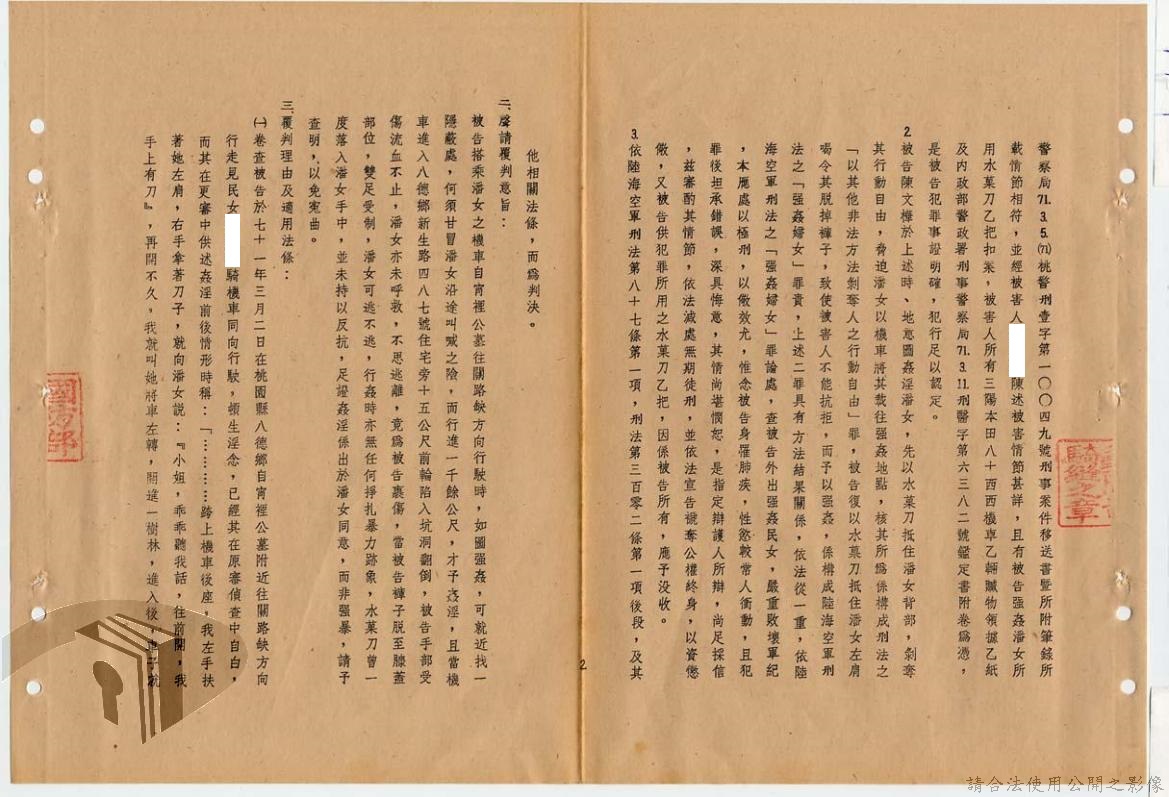 警察局71.3.5.(71)桃警刑壹字第一〇〇四九號刑事案件移送書暨所附筆錄所
載情節相符，並經被害人　　陳述被害情節甚詳，且有被告强姦潘女所
用水菓刀乙把扣案，被害人所有三陽本田八十西西機車乙輛贓物領據乙紙
及內政部警政署刑事警察局71.3.11.刑醫字第六三八二號鑑定書附卷爲憑，
是被告犯罪事證明確，犯行足以認定。
2.被告陳文樑於上述時、地意圖姦淫潘女，先以水菓刀抵住潘女背部，剝奪
其行動自由，脅迫潘女以機車將其載往强姦地點，核其所爲係構成刑法之
「以其他非法方法剝奪人之行動自由」罪，被告復以水菓刀抵住潘女左肩
喝令其脫掉褲子，致使被害人不能抗拒，而予以强姦，係構成陸海空軍刑
法之「强姦婦女」罪責，上述二罪具有方法結果關係，依法從一重，依陸
海空軍刑法之「强姦婦女」罪論處，查被告外出强姦民女，嚴重敗壞軍紀
，本應處以極刑，以儆效尤，惟念被告身罹肺疾，性慾較常人衝動，且犯
罪後坦承錯誤，深具悔意，其情尚堪憫恕，是指定辯護人所辯，尚足採信
，茲審酌其情節，依法減處無期徒刑，並依法宣告褫奪公權終身，以資懲
儆，又被告供犯罪所用之水菓刀乙把，因係被告所有，應予没收。
3.依陸海空軍刑法第八十七條第一項，刑法第三百零二條第一項後段，及其
2
他相關法條，而爲判決。
二、聲請覆判意旨：
被告搭乘潘女之機車自宵裡公墓往關路缺方向行駛時，如圖强姦，可就近找一
隱蔽處，何須甘冒潘女沿途叫喊之險，而行進一千餘公尺，才予姦淫，且當機
車進入八德鄉新生路四八七號住宅旁十五公尺前輪陷入坑洞翻倒，被告手部受
傷流血不止，潘女亦未呼救，不思逃離，竟爲被告裹傷，當被告褲子脫至膝蓋
部位，雙足受制，潘女可逃不逃，行姦時亦無任何掙扎暴力跡象，水菓刀曾一
度落入潘女手中，並未持以反抗，足證姦淫係出於潘女同意，而非强暴，請予
查明，以免寃曲。
三、覆判理由及適用法條：
㈠卷查被告於七十一年三月二日在桃園縣八德鄉自宵裡公墓附近往關路缺方向
行走見民女　　騎機車同向行駛，頓生淫念，已經其在原審偵查中自白，
而其在更審中供述姦淫前後情形時稱：「…………跨上機車後座，我左手扶
著她左肩，右手拿著刀子，就向潘女說：『小姐，乖乖聽我話，往前開，我
手上有刀』，再開不久，我就叫她將車左轉，開進一樹林，進入後，車子就
國防部
騎縫之章
請合法使用公開之影像